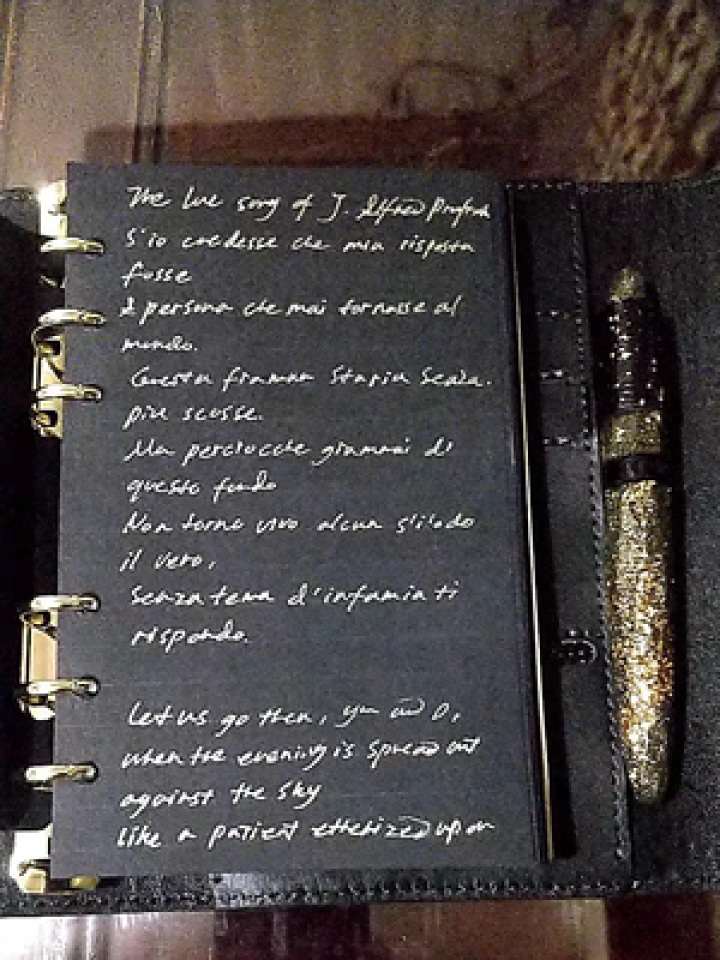 The Love song of J. Alfred Prufrock
S'io credesse che mia risposta
fosse
A persona che mai tornasse al
mondo.
Questa fiamma staria senza.
piu scosse.
Ma perciocche giammai di
questo fondo
Non torno vivo alcun s'i'odo
il vero,
Senza tema d'infamia ti
rispondo.
Let us go then, you and I,
when the evening is spread out
against the sky
Like a patient etherized upon